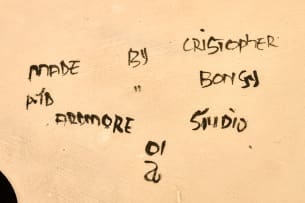 MADE BY CRISTOPHER
PTD " BONGY
ARDMORE STUDIO
01
a